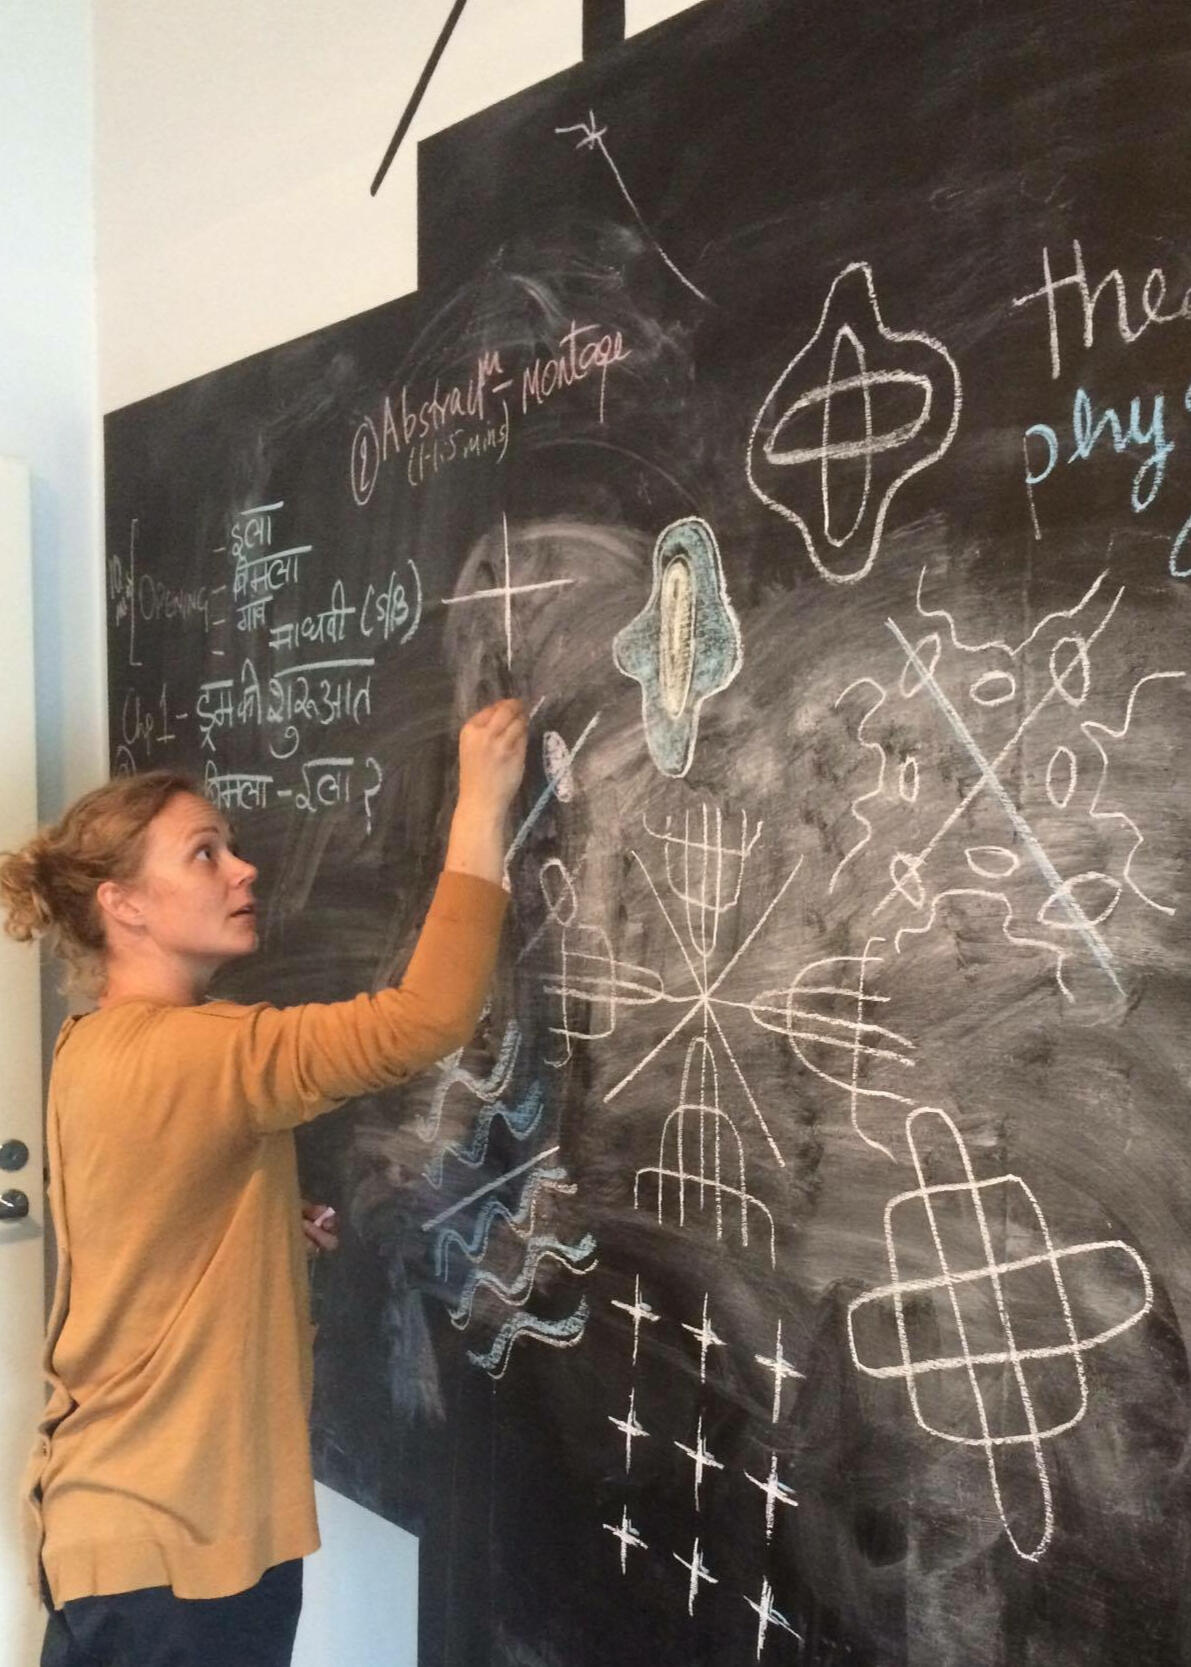 ② Abstract^n - Montage
(1-1.5 mins)
OPENING - इला
- बिमला
- गांव
- माधवी (S/B)
Chp 1 - ड्रम की शुरूआत
बिमला - इला ?
the
phy